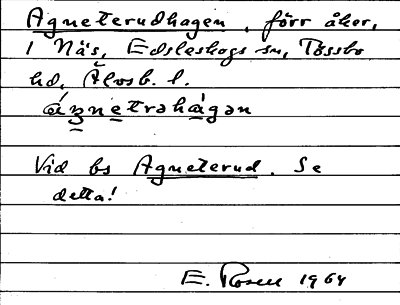 Agneterudhagen, förr åker,
1 Näs, Edsleskogs sn, Tössbo
hd, Älvsb. l.
áʒnetrəhàgən
Vid bs Agneterud. Se
detta!
E. Rosell 1964